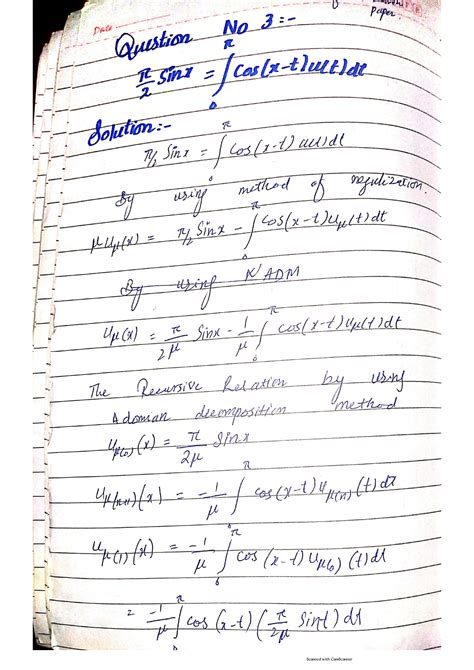 paper
Date
Question No 3:-
π/2 Sinx = ∫₀^π Cos(x-t)u(t)dt
Solution:-
π/2 Sinx = ∫₀^π Cos(x-t) u(t)dt
By using method of regulization.
μuμ(x) = π/2 Sinx - ∫₀^π Cos(x-t)uμ(t)dt
By using ADM
uμ(x) = π/2μ Sinx - 1/μ ∫₀^π cos(x-t)uμ(t)dt
The Recursive Relation by using
Adoman decomposition method
uμ(0)(x) = π/2μ Sinx
uμ(n+1)(x) = -1/μ ∫₀^π cos(x-t)uμ(n)(t)dt
uμ(1)(x) = -1/μ ∫₀^π cos(x-t)uμ(0)(t)dt
= -1/μ ∫₀^π cos(x-t)(π/2μ Sint)dt
Scanned with CamScanner